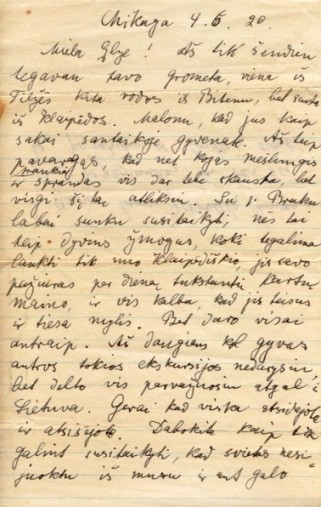 Mikaga 4. 6. 20.
Miela Elze! Aš tik šendien
tegavau tavo gromatą, viena iš
Tilžės kita rodos iš Bitėnu, bet
iš Klaipėdos. Malonu, kad jus kaip
sakai santaikoje gyvenat. Aš taip
pavargęs, kad net kojas
rankia
ir sprandas vis dar tebe skausta, bet
visgi šį tai atliksiu. Su J.
labai sunku susitaikyti, nes tai
taip dyvins žmogus, kokį tegalima
laukti tik nuo Klaipėdiškio jis savo
per dieną tukstantį kartu
maino, ir vis kalba, kad jis teisus
ir tiesa mylis. Bet daro visai
antraip. Aš daugiaus kol gyvas
antros tokios ekskursijos nedarysiu,
bet delto vis parvažiuosiu atgal į
Lietuva. Gerai kad viską
ir atsišėjote. Dabokite kaip tik
galint susitaikyti, kad svietas nesi
juoktu iš musu ir ant galo